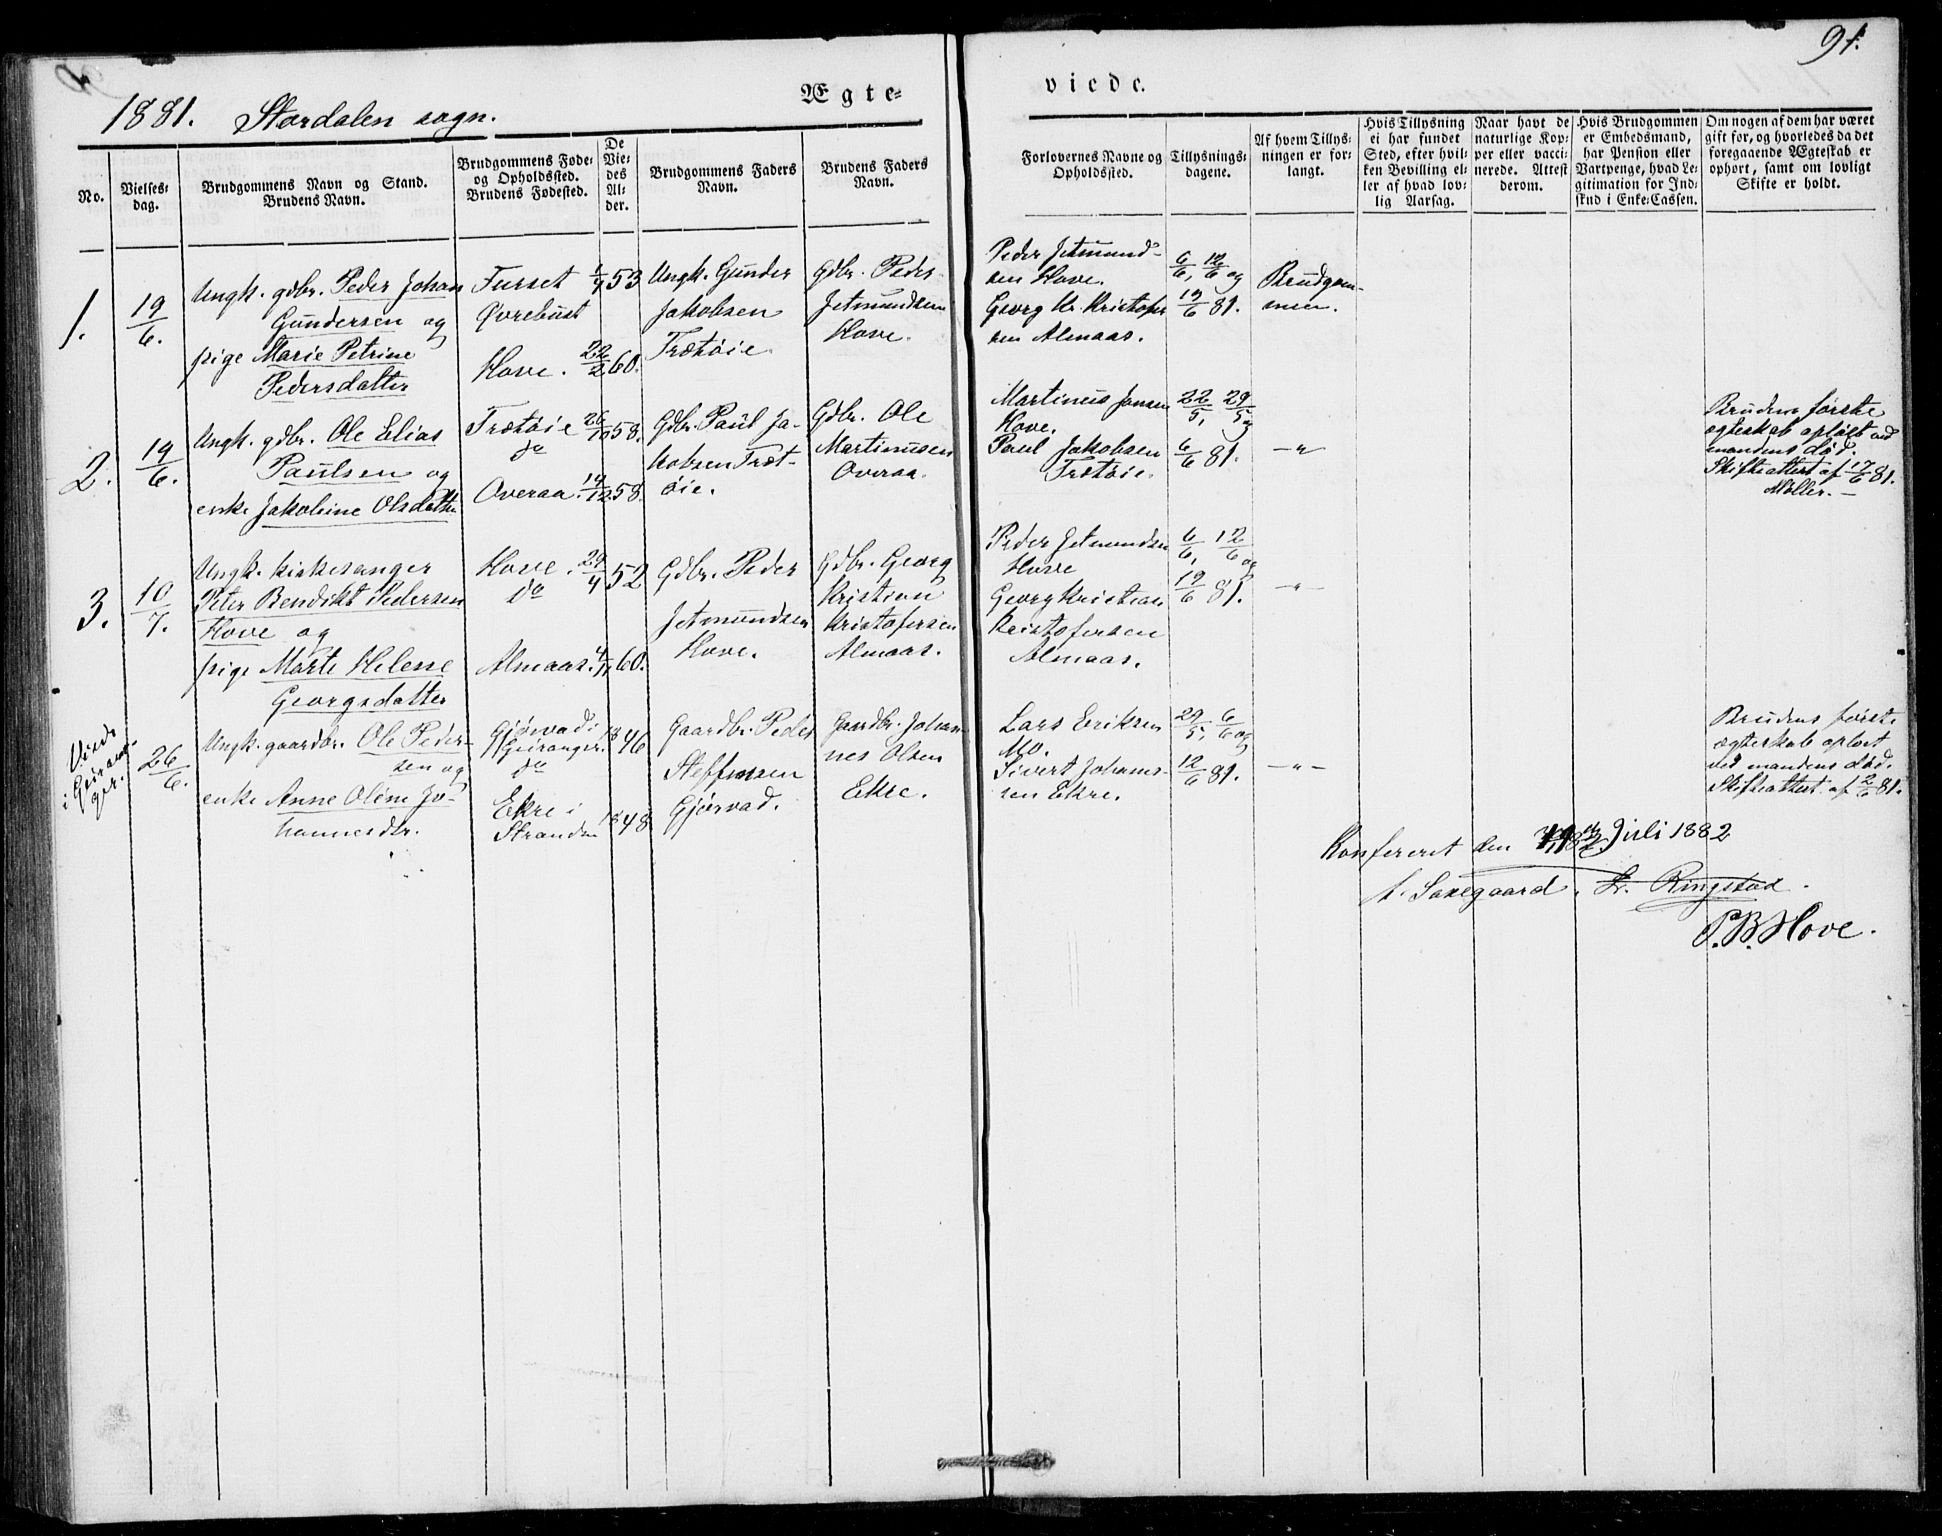 91.
1881. Stordalen sogn.
Ægte=
viede.
No.
Vielses=
dag.
Brudgommens Navn og Stand.
Brudens Navn.
Brudgommens Føde=
og Opholdssted.
Brudens Fødested.
De
Vie=
des
Al=
der.
Brudgommens Faders
Navn.
Brudens Faders
Navn.
Forlovernes Navne og
Opholdssted.
Tillysnings=
dagene.
Af hvem Tillys=
ningen er for=
langt.
Hvis Tillysning
ei har fundet
Sted, efter hvil=
ken Bevilling el=
ler af hvad lov=
lig Aarsag.
Naar havt de
naturlige Kop=
per eller vacci=
nerede. Attest
derom.
Hvis Brudgommen
er Embedsmand,
har Pension eller
Vartpenge, hvad Le=
gitimation for Ind=
skud i Enke=Cassen.
Om nogen af dem har været
gift før, og hvorledes da det
foregaaende Ægteskab er
ophørt, samt om lovligt
Skifte er holdt.
1.
19/6.
Ungk. gdbr. Peder Johan
Gundersen og
pige Marie Petrine
Pedersdatter
Furset
Øvrebust
Hove.
53
22/2 60.
Ungk. Gunder
Jakobsen
Trøtøie
Gdbr. Peder
Jetmundsen
Hove.
Peder Jetmund-
sen Hove.
Georg Kr. Kristofer
sen Almaas.
6/6, 12/6 og
19/6 81.
Brudgom-
men.
2.
19/6.
Ungk. gdbr. Ole Elias
Paulsen og
enke Jakobine Olsdatter
Trøtøie
do
Overaa.
26/10 58.
14/12 58.
Gdbr. Paul Ja-
kobsen Trøt-
øie.
Gdbr. Ole
Martinussen
Overaa.
Martinus Jansen
Hove.
Paul Jakobsen
Trøtøie.
22/5, 29/5 og
6/6 81.
—"—
Brudens første
egteskab opløst ved
mandens død.
Skifteattest af 17/6 81.
Møller. —
3.
10/7.
Ungk. kirkesanger
Peter Bendikt Pedersen
Hove og
pige Marte Helene
Georgsdatter
Hove.
do
Almaas.
29/4 52
4/11 60.
Gdbr. Peder
Jetmundsen
Hove.
Gdbr. Georg
Kristian
Kristofersen
Almaas.
Peder Jetmundsen
Hove
Georg Kristian
Kristofersen
Almaas.
6/6, 12/6 og
19/6 81.
—"—
Viede
i Geiran-
ger.
26/6.
Ungk. gaardbr. Ole Peder-
sen og
enke Anne Oline Jo-
hannesdtr.
Gjørvad i
Geiranger.
do
Ekre i
Stranden
1846
1848
Gaardbr. Peder
Steffensen
Gjørvad.
Gaardbr. Johan-
nes Olsen
Ekre.
Lars Eriksen
Mo.
Sivert Johans-
sen Ekre.
29/5, 6/6 og
12/6 81.
—"—
Brudens første
ægteskab opløst
ved mandens død.
Skifteattest af 2/6 81.
Konfereret den Juli 1882
Saxegaard. Kr. Ringstad.
P. B. Hove.